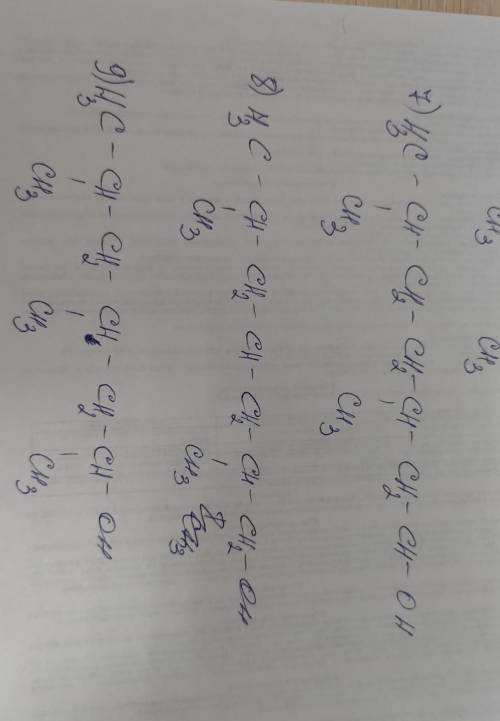 CH3 CH3
7) H3C - CH - CH2 - CH2 - CH - CH2 - CH - OH
CH3 CH3
8) H3C - CH - CH2 - CH - CH2 - CH - CH2 - OH
CH3 CH3
9) H3C - CH - CH2 - CH - CH2 - CH - OH
CH3 CH3 CH3